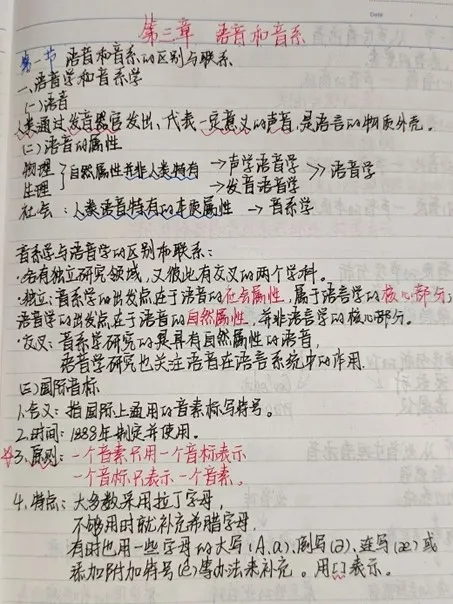 Date
第三章 语音和音系
第一节 语音和音系的区别与联系
一、语音学和音系学
(一)语音
人类通过发音器官发出、代表一定意义的声音,是语言的物质外壳。
(二)语音的属性
物理 } 自然属性并非人类特有 → 声学语音学 >> 语音学
生理 → 发音语音学
社会:人类语音特有的本质属性 → 音系学
音系学与语音学的区别和联系:
·各有独立研究领域,又彼此有交叉的两个学科。
·独立:音系学的出发点在于语音的社会属性,属于语言学的核心部分;
语音学的出发点在于语音的自然属性,并非语言学的核心部分。
·交叉:音系学研究的是具有自然属性的语音,
语音学研究也关注语音在语言系统中的作用.
(三)国际音标
1.含义:指国际上通用的音素标写符号。
2.时间:1888年制定并使用。
☆3.原则:一个音素只用一个音标表示
一个音标只表示一个音素。
4.特点:大多数采用拉丁字母,
不够用时就补充希腊字母,
有时也用一些字母的大写(A,ɑ),倒写(ə),连写(æ)或
添加附加符号(ȼ)等办法来补充。用[ ]表示。